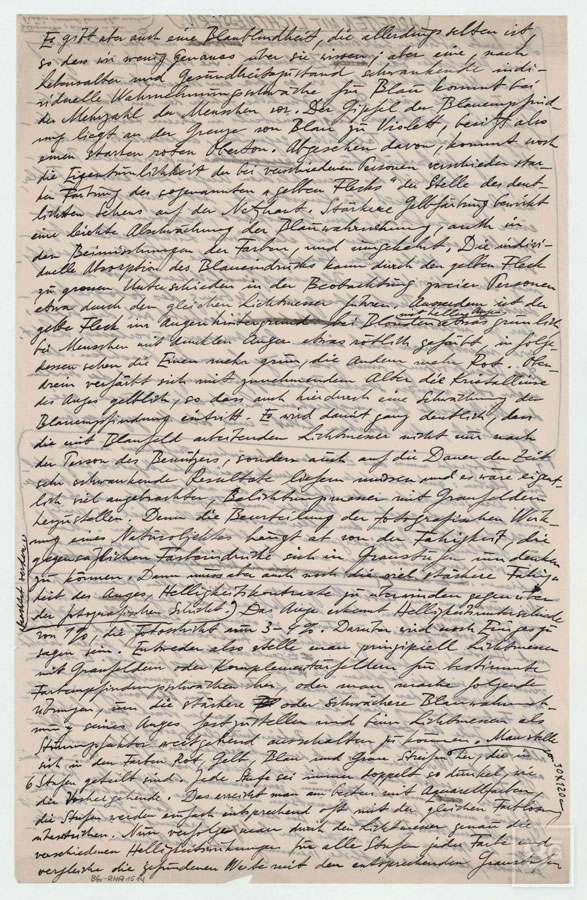 Es gibt aber auch eine Blaublindheit, die allerdings selten ist,
so dass wir wenig Genaues über sie wissen; aber eine, nach
Lebensalter und Gesundheitszustand schwankende indi-
viduelle Wahrnehmungsschwäche für Blau kommt bei
der Mehrzahl der Menschen vor. Der Gipfel der Blauempfind
ung liegt an der Grenze von Blau zu Violett, besitzt also
einen starken roten Oberton. Abgesehen davon, kommt noch
die Eigentümlichkeit der bei verschiedenen Personen verschieden star-
ken Färbung des sogenannten "gelben Flecks" der Stelle des deut-
lichsten Sehens auf der Netzhaut. Stärkere Gelbfärbung bewirkt
eine leichte Abschwächung der Blauwahrnehmung, auch in
den Beimischungen der Farben, und umgekehrt. Die indivi-
duelle Absorption des Blaueindrucks kann durch den gelben Fleck
zu grossen Unterschieden in der Beobachtung zweier Personen
etwa durch den gleichen Lichtmesser führen. Ausserdem ist der
mit hellen Augen
gelbe Fleck im Augenhintergrunde bei Blonden etwas grünlich
bei Menschen mit dunklen Augen etwas rötlich gefärbt, in folge
dessen sehen die Einen mehr grün, die Andern mehr Rot. Oben-
drein verfärbt sich mit zunehmendem Alter die Kristallinse
des Auges gelblich, so dass auch hierdurch eine Schwächung der
Blauempfindung eintritt. Es wird damit ganz deutlich, dass
die mit Blaufeld arbeitenden Lichtmesser nicht nur nach
der Person des Benützers, sondern auch auf die Dauer der Zeit
sehr schwankende Resultate liefern müssen und es wäre eigent-
lich viel angebrachter, Belichtungsmesser mit Graufeldern
herzustellen. Denn die Beurteilung der fotografischen Wirk-
ung eines Naturobjektes hängt ab von der Fähigkeit, die
gegensätzlichen Farbeindrücke sich in Graustufen umdenken
zu können. Dann muss aber auch noch die viel stärkere Fähig-
keit des Auges, Helligkeitskontraste zu überwinden gegenüber
der fotografischen Schicht) Das Auge erkennt Helligkeitsunterschiede
von 1%, die Fotoschicht nur 3-4%. Darüber wird noch Einiges zu
sagen sein. Entweder also stelle man prinzipiell Lichtmesser
mit Graufeldern oder Komplementärfeldern für bestimmte
Farbempfindungsschwächen her, oder man mache folgende
Übungen, um die stärkere oder schwächere Blauwahrneh-
mung seines Auges festzustellen und beim Lichtmessen als
Störungsfaktor weitgehend ausschalten zu können. Man stelle
sich in den Farben Rot, Gelb, Blau und Grau Streifen her, die in
6 Stufen geteilt sind. Jede Stufe sei immer doppelt so dunkel, wie
die Vorhergehende. Das erreicht man am besten mit Aquarellfarben,
die Stufen werden einfach entsprechend oft mit der gleichen Farblösung
überstrichen. Nun verfolge man durch den Lichtmesser genau die
verschiedenen Helligkeitswirkungen für alle Stufen jeder Farbe und
vergleiche die gefundenen Werte mit den entsprechenden Graustufen
BG-RHA 1514